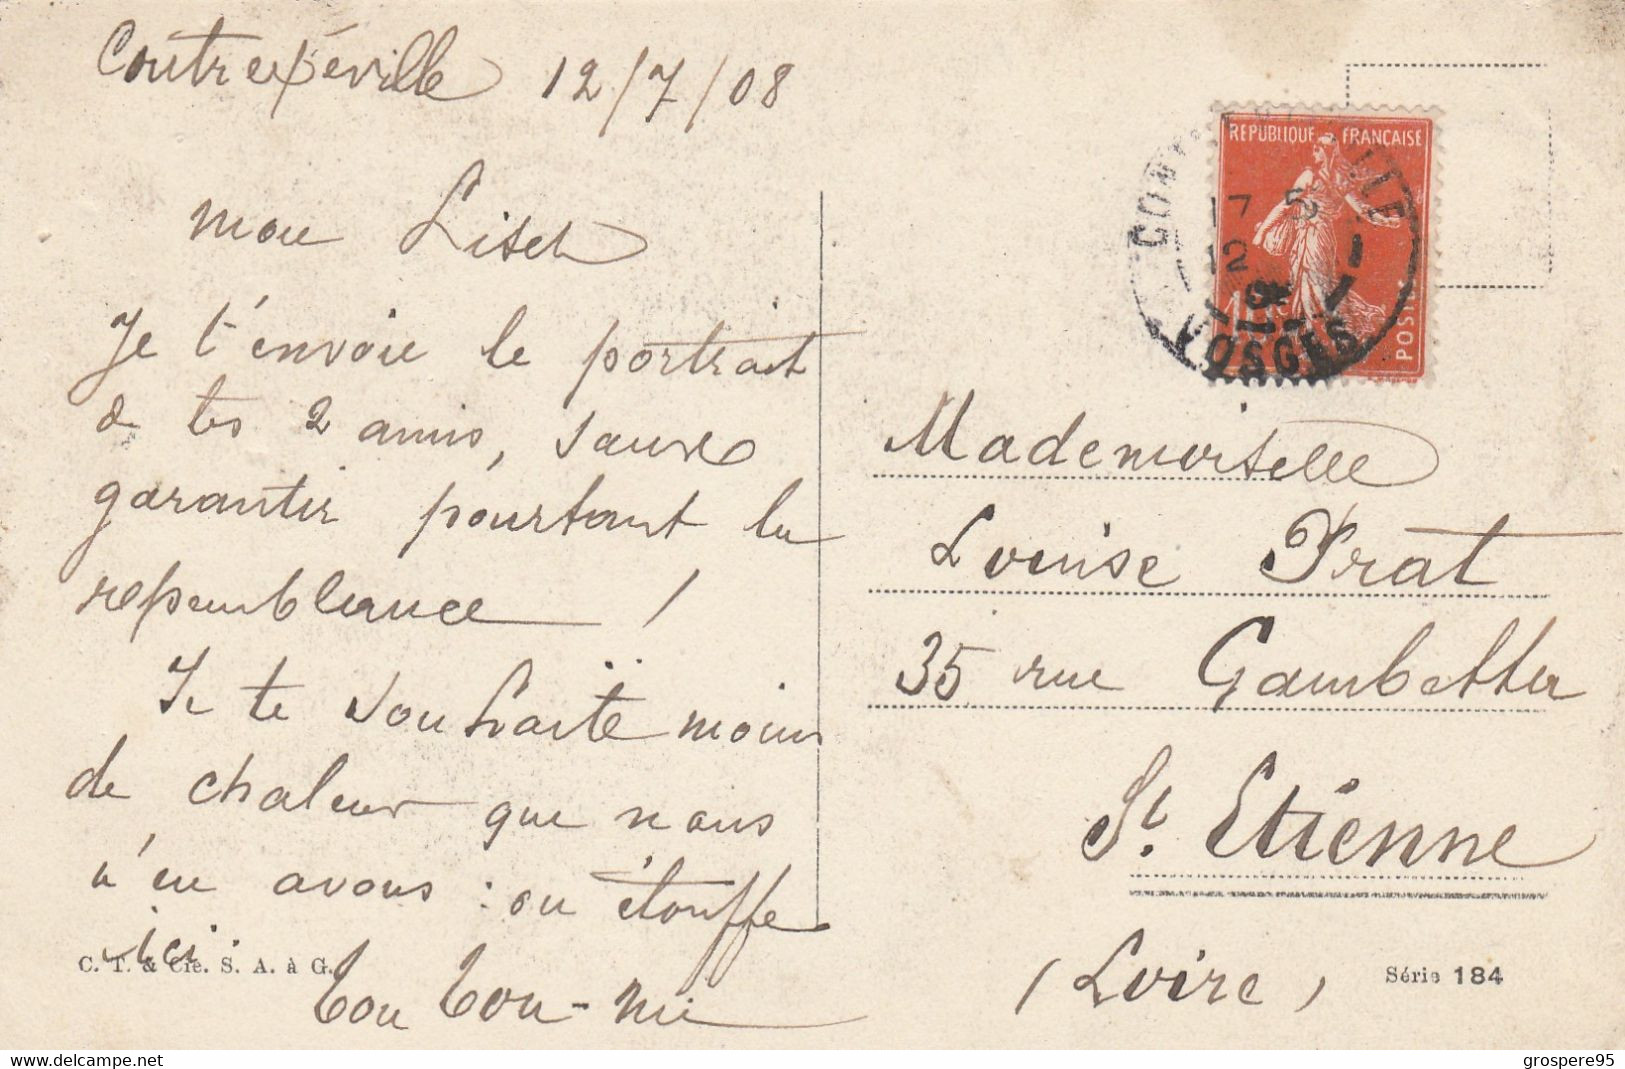 Contrexéville 12/7/08
mon Liset
Je t'envoie le portrait
de tes 2 amis, sans
garantir pourtant la
ressemblance !
Je te souhaite moins
de chaleur que nous
n'en avons : on étouffe
ici.
Ton Tou-mi
C. T. & Cie. S. A. à G.
REPUBLIQUE FRANÇAISE
POSTES
17 5
12
VOSGES
Mademoiselle
Louise Prat
35 rue Gambetta
St. Etienne
(Loire)
Série 184
www.delcampe.net
grospere95